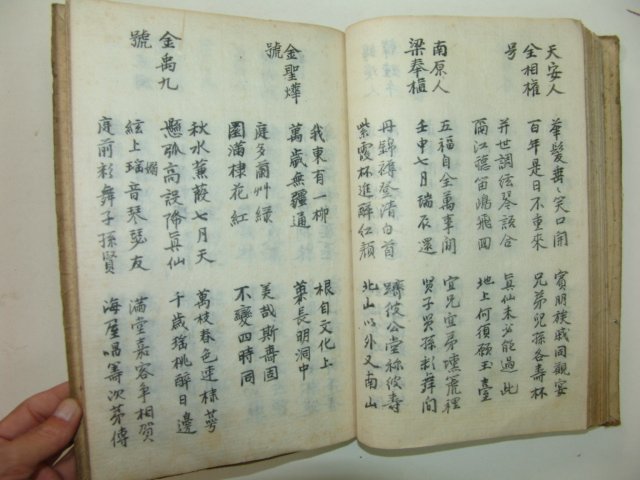 天安人
全相權
号
華髮無▢笑口開 賓朋族戚同觀宴
百年是日不重來 兄弟兒孫各壽杯
並世調絃琴韻合 真仙未必能過此
隔江聽笛鴻飛回 地上何須願玉臺
南原人
梁奉權
五福自全萬事閒 宜兄宜弟壎篪裡
壬申七月瑞辰還 賢子賢孫彩舞間
丹錦詩登清白首 躋彼公堂称彼壽
紫霞杯進醉紅顏 北山以外又南山
金聖燁
號
我東有一柳 根自文化上
萬歲無疆通 葉長明洞中
庭多蘭艸綠 美哉斯壽固
園滿棣花紅 不變四時同
金禹九
號
秋水蒹葭七月天 萬枝春色連棣萼
懸弧高設降真仙 千歲瑤桃醉日邊
絃上瑤音琴瑟友 滿堂嘉客爭相賀
庭前彩舞子孫賢 海屋唱籌次苐傳